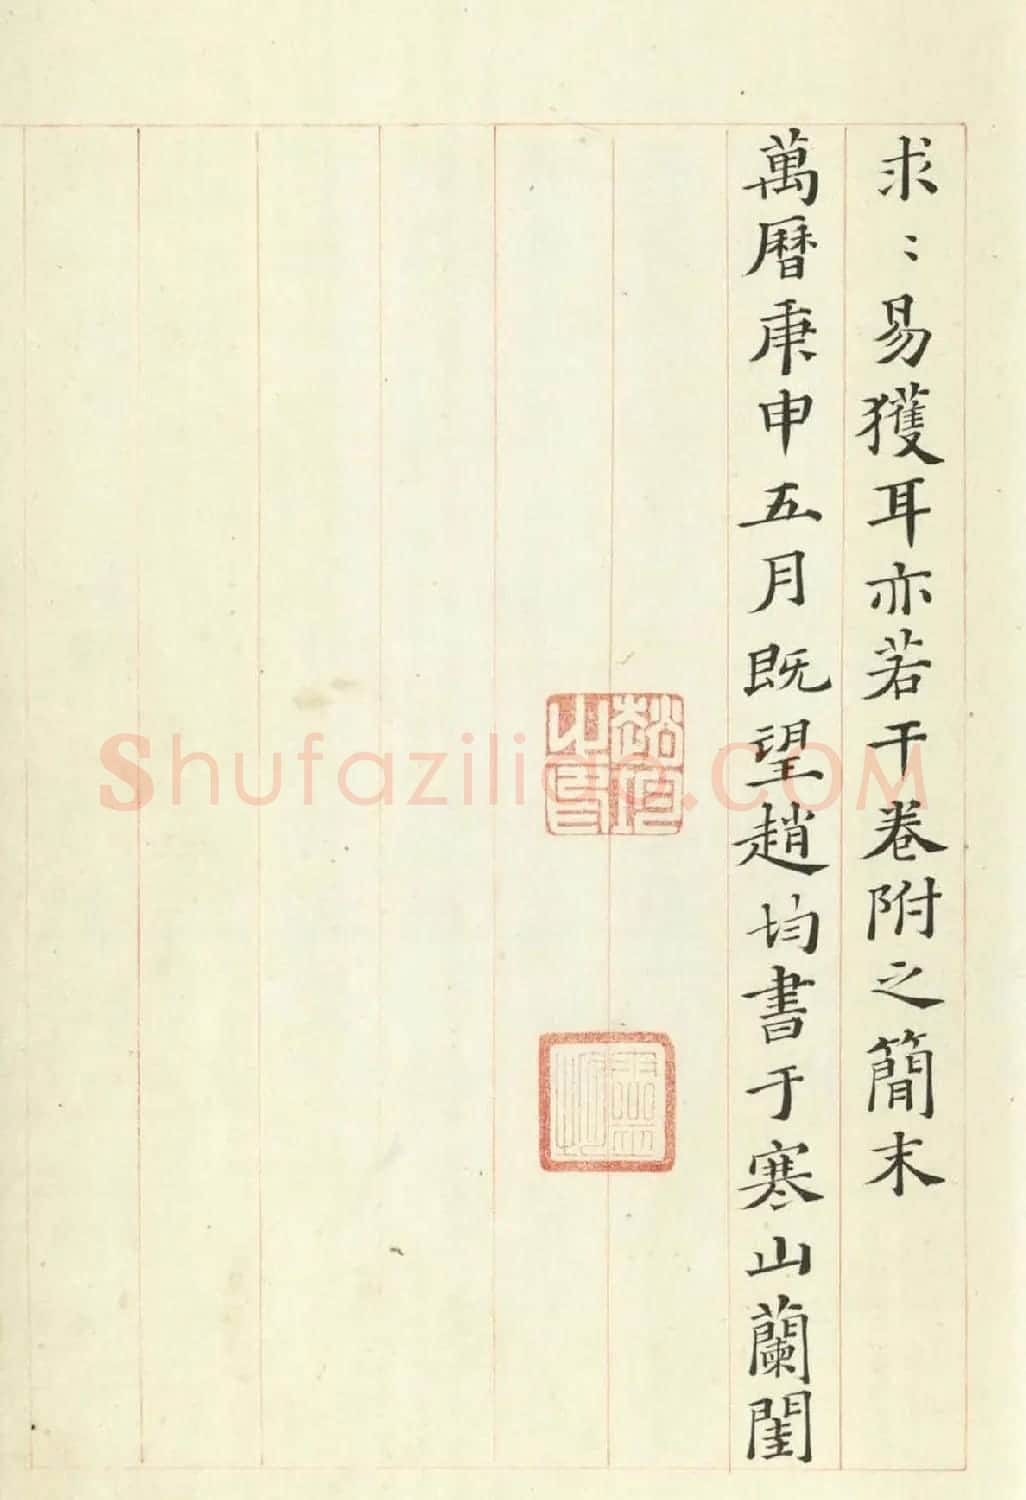 求〻易獲耳亦若干卷附之簡末
萬曆庚申五月既望趙均書于寒山蘭閨
趙均之印
Shufaziliao.COM